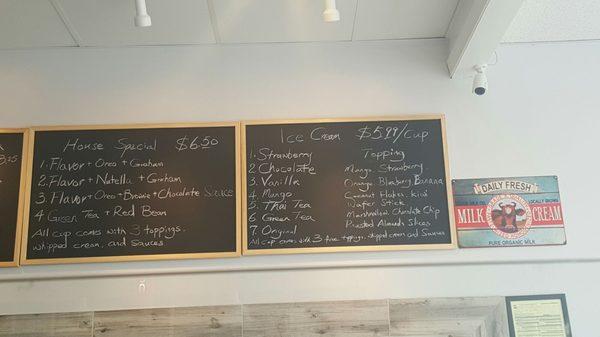 House Special $6.50
1. Flavor + Oreo + Graham
2. Flavor + Nutella + Graham
3. Flavor + Oreo + Brownie + Chocolate Sauce
4 Green Tea + Red Bean
All cup comes with 3 topping,
whipped cream, and Sauces
Ice Cream $5.99/cup
1. Strawberry
2. Chocolate
3. Vanilla
4. Mango
5. Thai Tea
6 Green Tea
7. Original
Topping
Mango Strawberry
Orange Blueberry Banana
Coconut Flakes Kiwi
Wafer Stick
Marshmallow Chocolate Chip
Roasted Almonds Slices
All cup comes with 3 free toppings, whipped cream and Sauces
DAILY FRESH
LOCALLY GROWN
MILK CREAM
PURE ORGANIC MILK